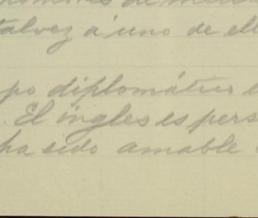 de
talvez á uno de ell
po diplomático e
. El ingles es pers
ha sido amable